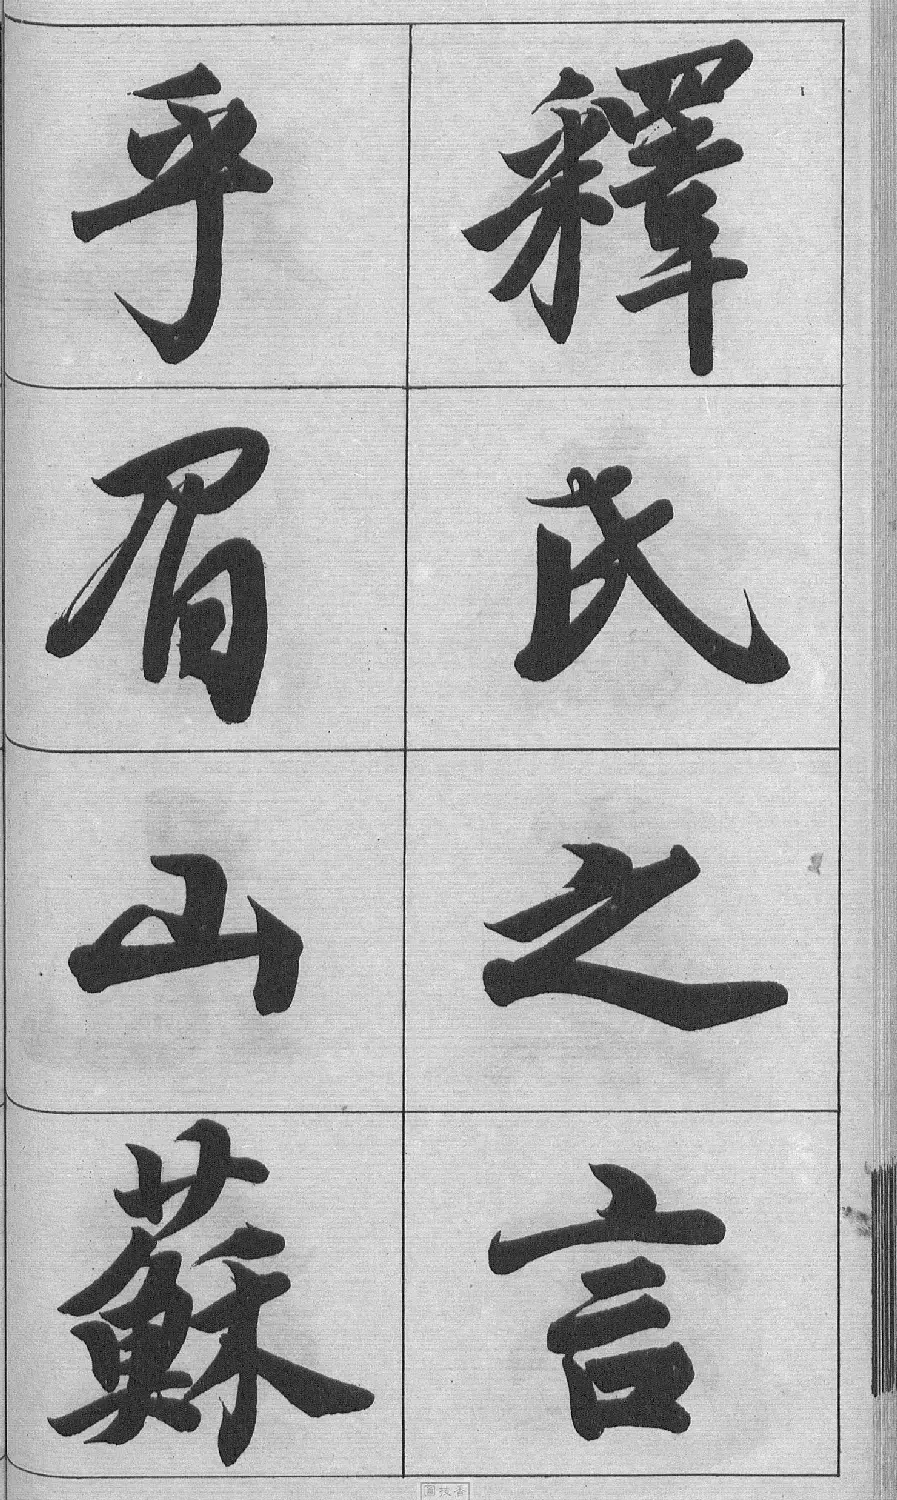 釋氏之言
乎眉山蘇